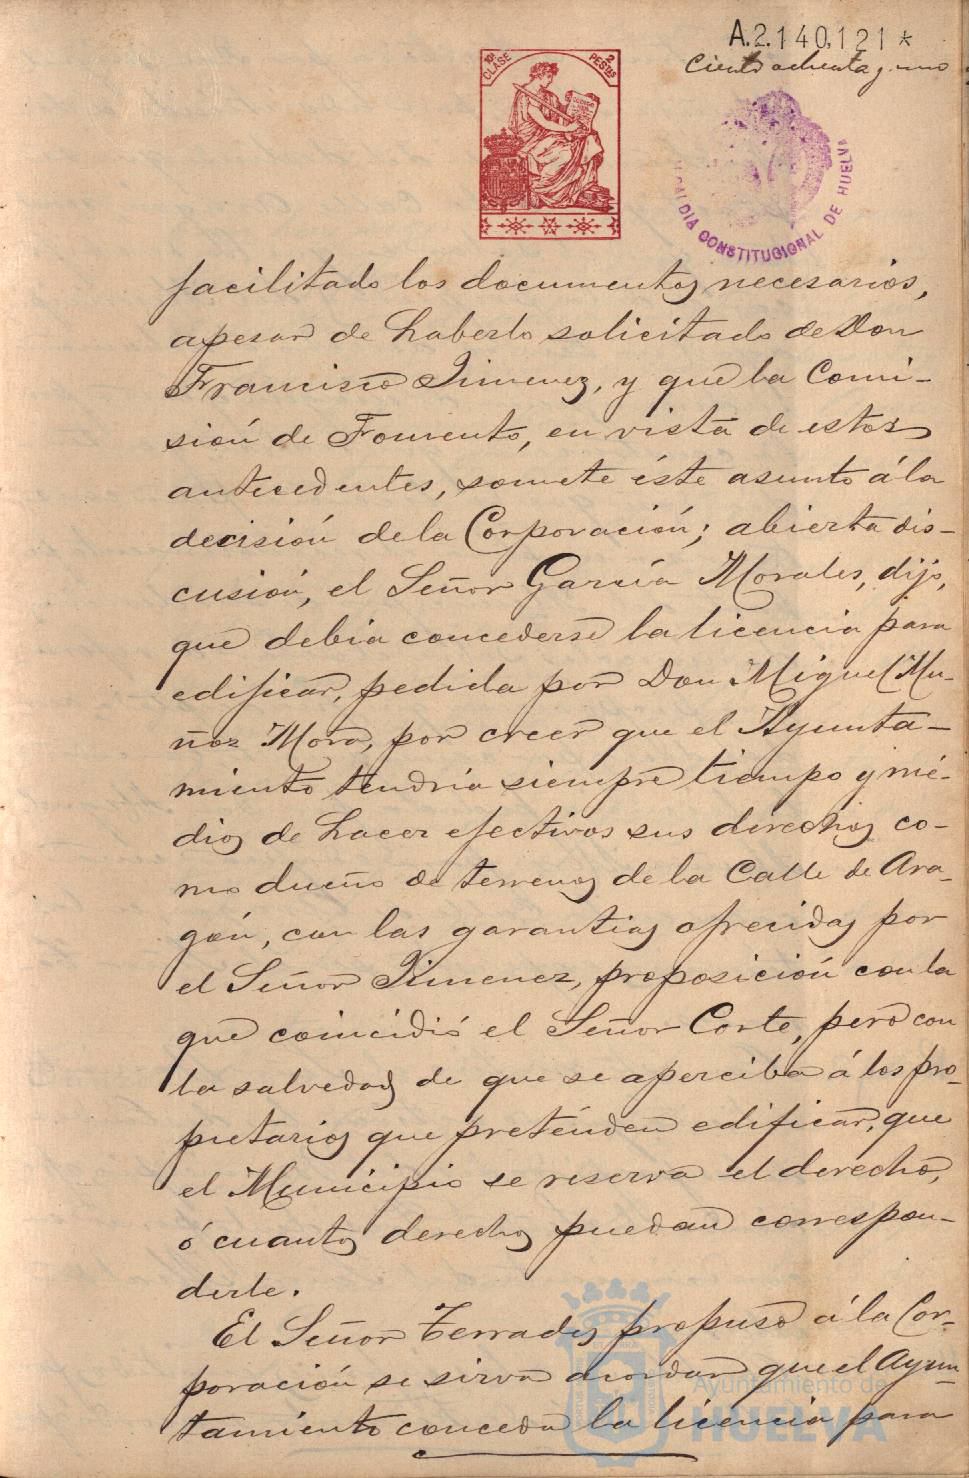 A.2.140,121 *
Ciento ochenta y uno
10ª CLASE 2 PESTAS
ALCALDIA CONSTITUCIONAL DE HUELVA
facilitado los documentos necesarios,
apesar de haberlo solicitado de Don
Francisco Jimenez, y que la Comi-
sión de Fomento, en vista de estos
antecedentes, somete éste asunto á la
decisión de la Corporación; abierta dis-
cusión, el Señor García Morales, dijo,
que debia concederse la licencia para
edificar, pedida por Don Miguel Mu-
ñoz Mora, por creer que el Ayunta-
miento tendría siempre tiempo y mé-
dios de hacer efectivos sus derechos co-
mo dueño de terrenos de la Calle de Ara-
gón, con las garantias ofrecidas por
el Señor Jimenez, proposición con la
que coincidió el Señor Corte, pero con
la salvedad de que se aperciba á los pro-
pietarios que pretenden edificar, que
el Municipio se reserva el derecho,
ó cuantos derechos puedan correspon-
derle.
El Señor Terrades propuso á la Cor-
poración se sirva acordar que el Ayun-
tamiento conceda la licencia para
Ayuntamiento de
HUELVA